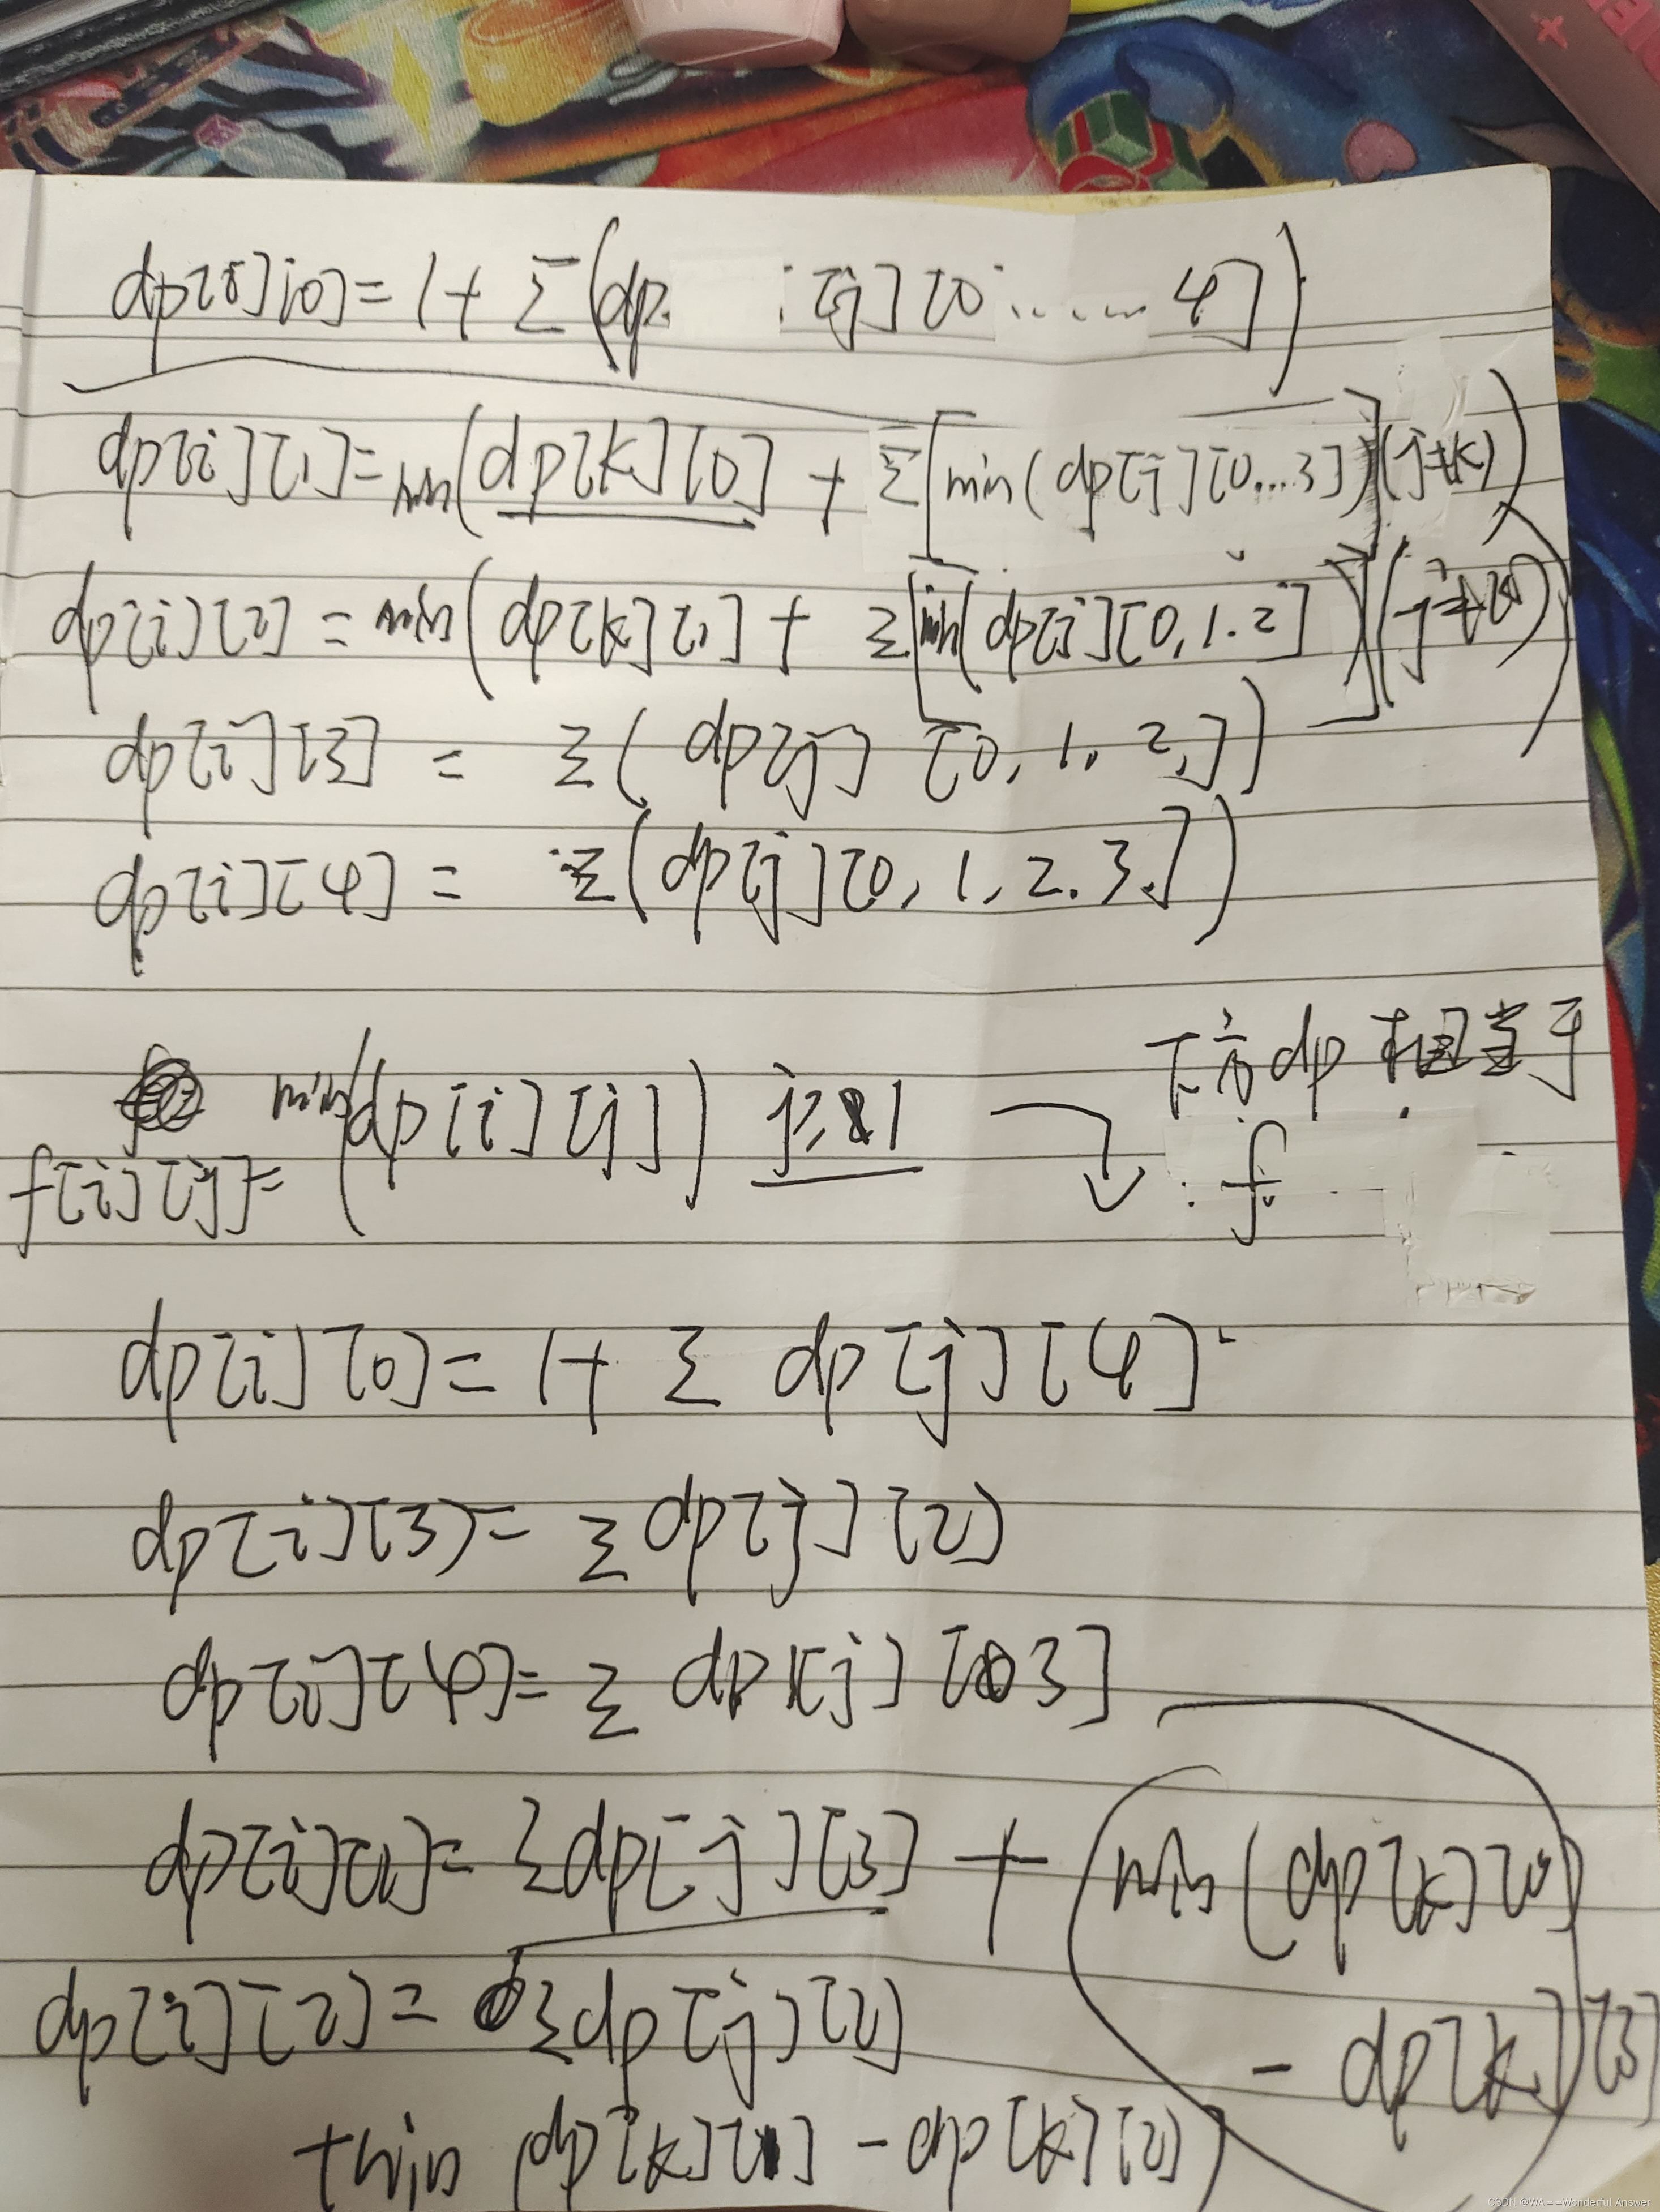 dp[i][0]=1+Σ(dp[j][0......4])
dp[i][1]=min(dp[k][0]+Σ[min(dp[j][0...3])](j≠k))
dp[i][2]=min(dp[k][1]+Σ[min(dp[j][0,1.2])](j≠k))
dp[i][3]=Σ(dp[j][0,1.2,])
dp[i][4]=Σ(dp[j][0,1,2.3.])
下方dp相当于
f[i][j]=min(dp[i][j]) j≥1
f
dp[i][0]=1+Σ dp[j][4]
dp[i][3]=Σ dp[j][2]
dp[i][4]=Σ dp[j][3]
dp[i][1]=Σdp[j][3]+min(dp[k][0]
-dp[k][3]
dp[i][2]=Σdp[j][2]
+min(dp[k][1]-dp[k][2])
CSDN @WA==Wonderful Answer